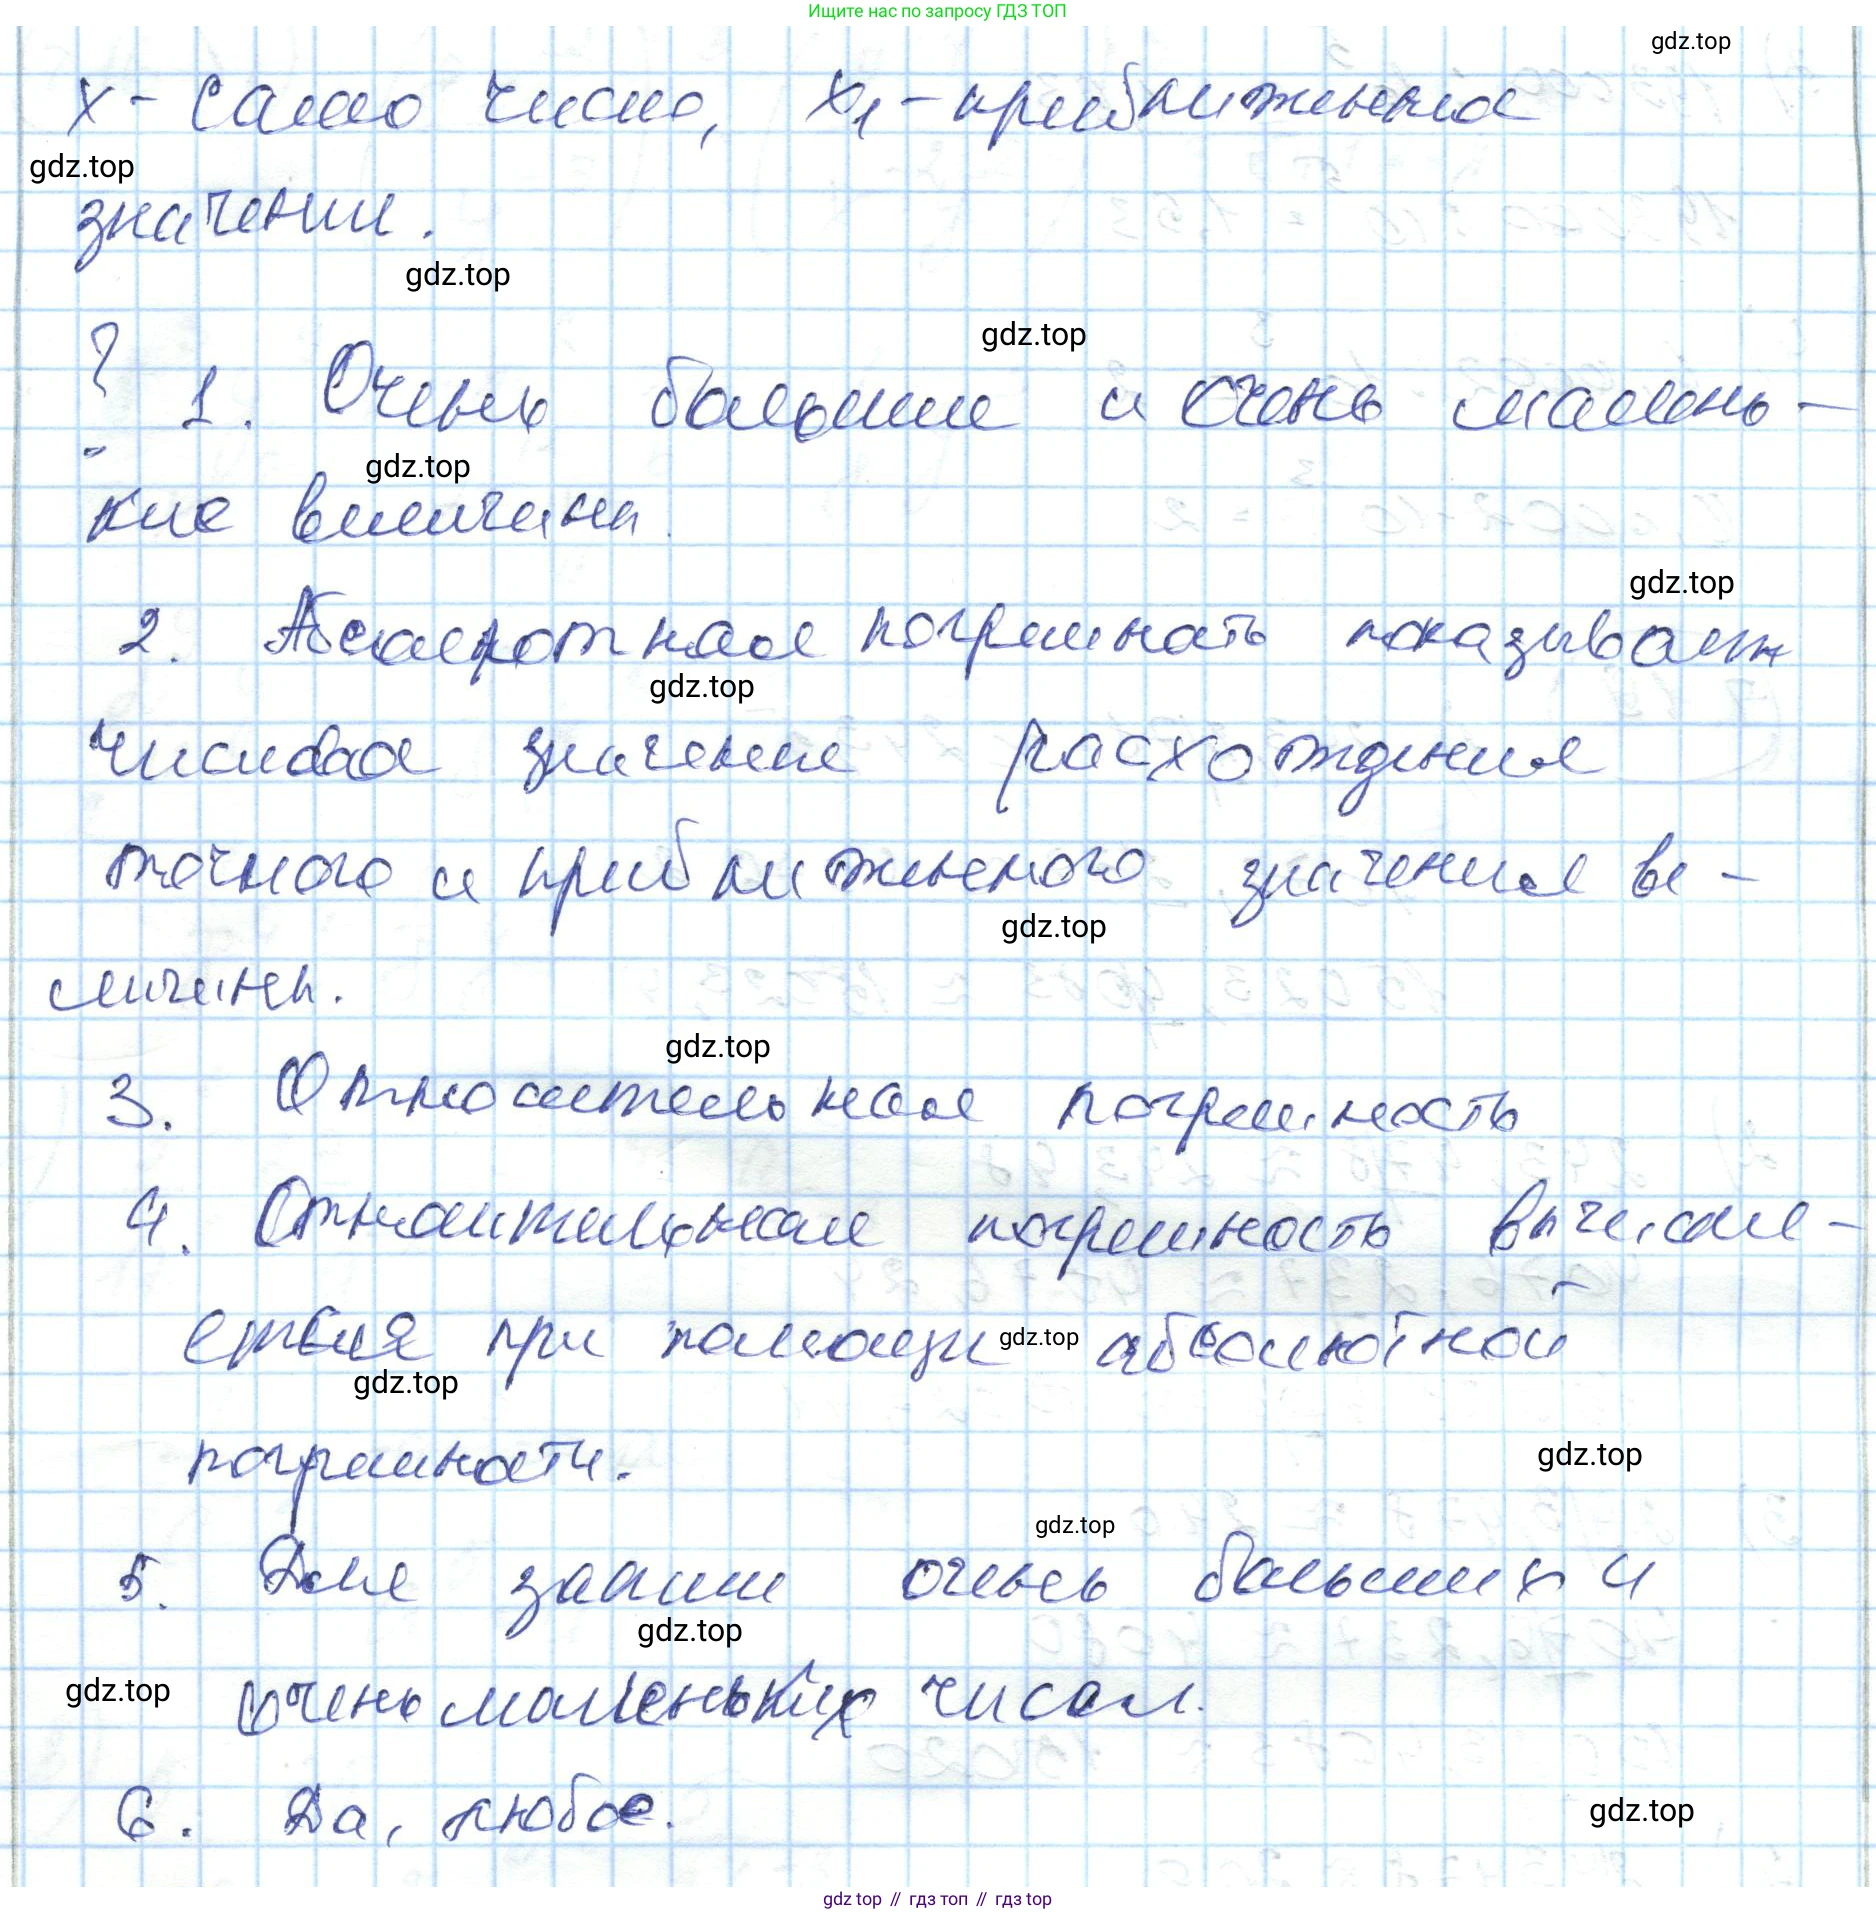 Ищите нас по запросу ГДЗ ТОП
gdz.top
x - само число, x₁ - приближенное
gdz.top
значении.
gdz.top
gdz.top
? 1. Очень большие и очень малень-
gdz.top
кие величины.
gdz.top
2. Абсолютная погрешность показывает
gdz.top
числовое значение расхождения
точного и приближенного значения ве-
gdz.top
личины.
gdz.top
3. Относительная погрешность
4. Относительная погрешность вычисля-
ется при помощи абсолютной
gdz.top
gdz.top
погрешности.
gdz.top
gdz.top
5. Для записи очень больших и
gdz.top
gdz.top
очень маленьких чисел.
6. Да, любое.
gdz.top
gdz top // гдз топ // gdz top